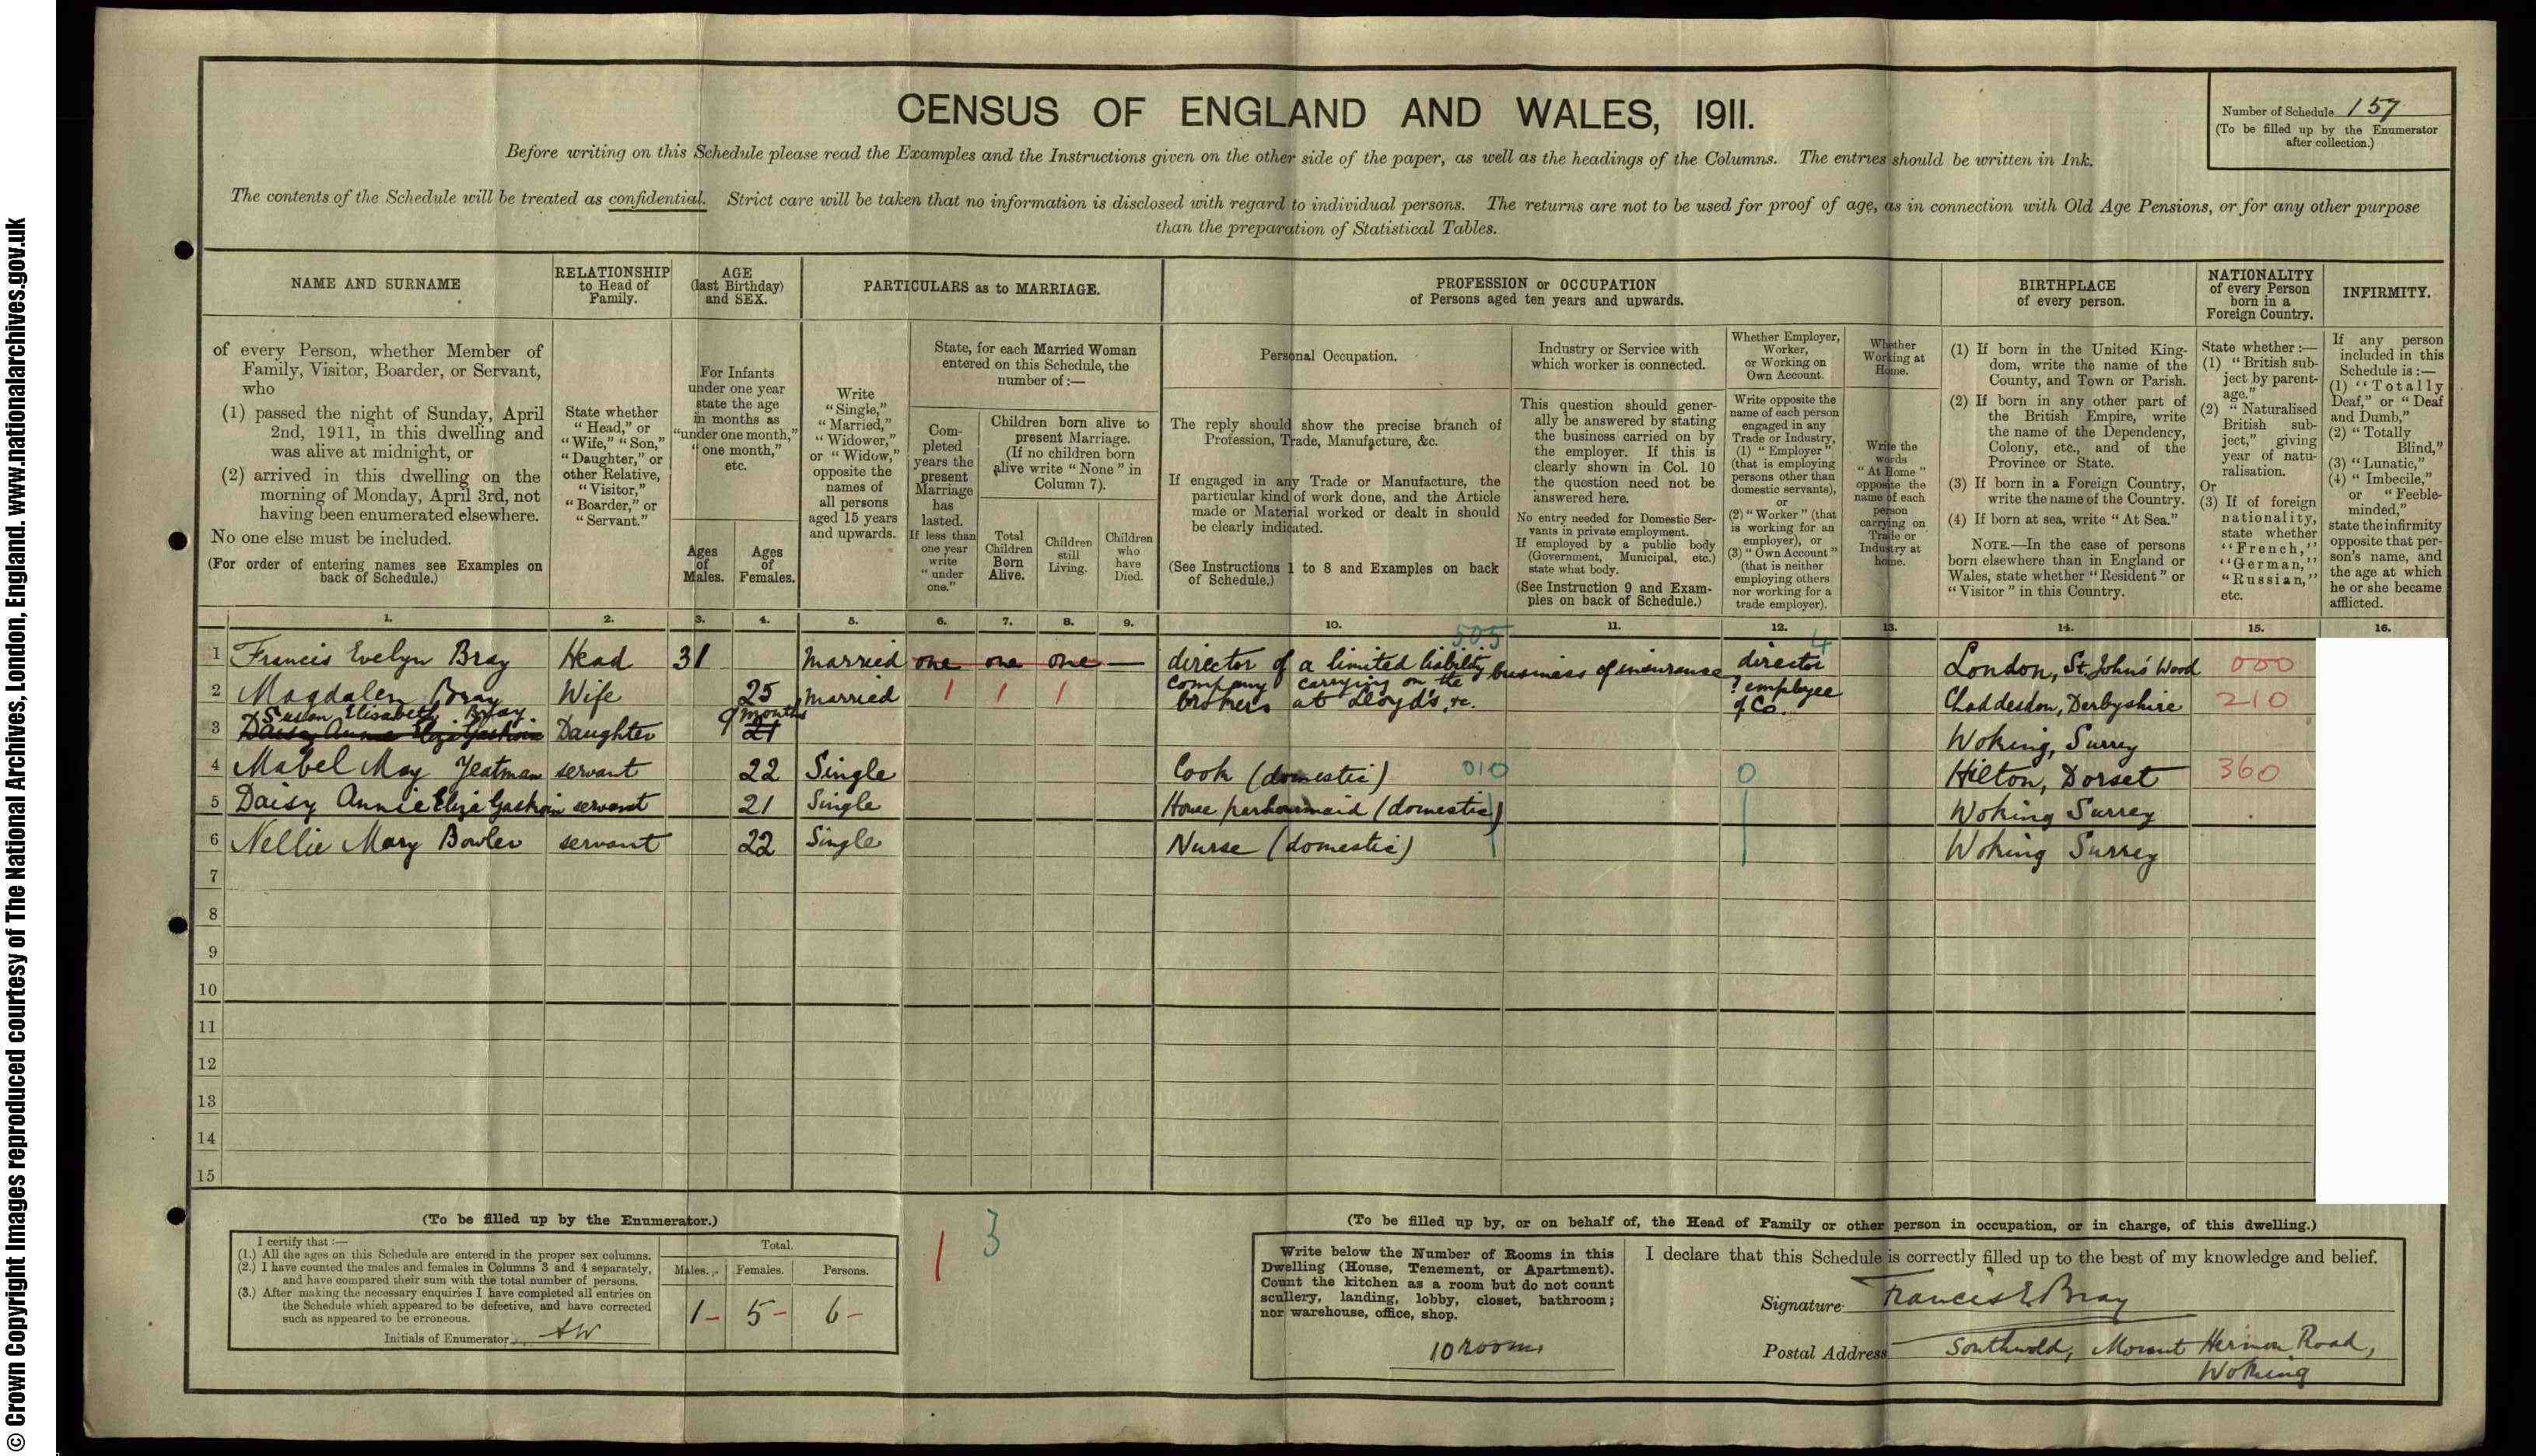 © Crown Copyright Images reproduced courtesy of The National Archives, London, England. www.nationalarchives.gov.uk
CENSUS OF ENGLAND AND WALES, 1911.
Number of Schedule 157
(To be filled up by the Enumerator
after collection.)
Before writing on this Schedule please read the Examples and the Instructions given on the other side of the paper, as well as the headings of the Columns. The entries should be written in Ink.
The contents of the Schedule will be treated as confidential. Strict care will be taken that no information is disclosed with regard to individual persons. The returns are not to be used for proof of age, as in connection with Old Age Pensions, or for any other purpose
than the preparation of Statistical Tables.
NAME AND SURNAME
of every Person, whether Member of
Family, Visitor, Boarder, or Servant,
who
(1) passed the night of Sunday, April
2nd, 1911, in this dwelling and
was alive at midnight, or
(2) arrived in this dwelling on the
morning of Monday, April 3rd, not
having been enumerated elsewhere.
No one else must be included.
(For order of entering names see Examples on
back of Schedule.)
RELATIONSHIP
to Head of
Family.
State whether
"Head," or
"Wife," "Son,"
"Daughter," or
other Relative,
"Visitor,"
"Boarder," or
"Servant."
AGE
(last Birthday)
and SEX.
For Infants
under one year
state the age
in months as
"under one month,"
"one month,"
etc.
Ages
of
Males.
Ages
of
Females.
PARTICULARS as to MARRIAGE.
Write
"Single,"
"Married,"
"Widower,"
or "Widow,"
opposite the
names of
all persons
aged 15 years
and upwards.
State, for each Married Woman
entered on this Schedule, the
number of :—
Com-
pleted
years the
present
Marriage
has
lasted.
If less than
one year
write
"under
one."
Children born alive to
present Marriage.
(If no children born
alive write "None" in
Column 7).
Total
Children
Born
Alive.
Children
still
Living.
Children
who
have
Died.
PROFESSION or OCCUPATION
of Persons aged ten years and upwards.
Personal Occupation.
The reply should show the precise branch of
Profession, Trade, Manufacture, &c.
If engaged in any Trade or Manufacture, the
particular kind of work done, and the Article
made or Material worked or dealt in should
be clearly indicated.
(See Instructions 1 to 8 and Examples on back
of Schedule.)
Industry or Service with
which worker is connected.
This question should gener-
ally be answered by stating
the business carried on by
the employer. If this is
clearly shown in Col. 10
the question need not be
answered here.
No entry needed for Domestic Ser-
vants in private employment.
If employed by a public body
(Government, Municipal, etc.)
state what body.
(See Instruction 9 and Exam-
ples on back of Schedule.)
Whether Employer,
Worker,
or Working on
Own Account.
Write opposite the
name of each person
engaged in any
Trade or Industry,
(1) "Employer"
(that is employing
persons other than
domestic servants),
or
(2) "Worker" (that
is working for an
employer), or
(3) "Own Account"
(that is neither
employing others
nor working for a
trade employer).
Whether
Working at
Home.
Write the
words
"At Home"
opposite the
name of each
person
carrying on
Trade or
Industry at
home.
BIRTHPLACE
of every person.
(1) If born in the United King-
dom, write the name of the
County, and Town or Parish.
(2) If born in any other part of
the British Empire, write
the name of the Dependency,
Colony, etc., and of the
Province or State.
(3) If born in a Foreign Country,
write the name of the Country.
(4) If born at sea, write "At Sea."
NOTE.—In the case of persons
born elsewhere than in England or
Wales, state whether "Resident" or
"Visitor" in this Country.
NATIONALITY
of every Person
born in a
Foreign Country.
State whether :—
(1) "British sub-
ject by parent-
age."
(2) "Naturalised
British sub-
ject," giving
year of natu-
ralisation.
Or
(3) If of foreign
nationality,
state whether
"French,"
"German,"
"Russian,"
etc.
INFIRMITY.
If any person
included in this
Schedule is :—
(1) "Totally
Deaf," or "Deaf
and Dumb,"
(2) "Totally
Blind,"
(3) "Lunatic,"
(4) "Imbecile,"
or "Feeble-
minded,"
state the infirmity
opposite that per-
son's name, and
the age at which
he or she became
afflicted.
1. 2. 3. 4. 5. 6. 7. 8. 9. 10. 11. 12. 13. 14. 15. 16.
505 4
1 Francis Evelyn Bray Head 31 Married one one one — director of a limited liability business of insurance director London, St. John's Wood 000
company carrying on the
2 Magdalen Bray Wife 25 married 1 1 1 brokers at Lloyd's, &c. ? employee of Co. Chaddesdon, Derbyshire 210
Susan Elisabeth Bray 9 months
3 Daisy Annie Eliza Gaskoin Daughter 21 Woking, Surrey
4 Mabel May Yeatman servant 22 Single Cook (domestic) 010 0 Hilton, Dorset 360
5 Daisy Annie Eliza Gaskoin servant 21 Single House parlourmaid (domestic) Woking Surrey
6 Nellie Mary Bowler servant 22 Single Nurse (domestic) Woking Surrey
7
8
9
10
11
12
13
14
15
(To be filled up by the Enumerator.)
I certify that :—
(1.) All the ages on this Schedule are entered in the proper sex columns.
(2.) I have counted the males and females in Columns 3 and 4 separately,
and have compared their sum with the total number of persons.
(3.) After making the necessary enquiries I have completed all entries on
the Schedule which appeared to be defective, and have corrected
such as appeared to be erroneous.
Initials of Enumerator
Total.
Males. Females. Persons.
1 - 5 - 6 -
1 3
(To be filled up by, or on behalf of, the Head of Family or other person in occupation, or in charge, of this dwelling.)
Write below the Number of Rooms in this
Dwelling (House, Tenement, or Apartment).
Count the kitchen as a room but do not count
scullery, landing, lobby, closet, bathroom;
nor warehouse, office, shop.
10 rooms
I declare that this Schedule is correctly filled up to the best of my knowledge and belief.
Signature Francis E Bray
Postal Address Southwold, Mount Hermon Road,
Woking